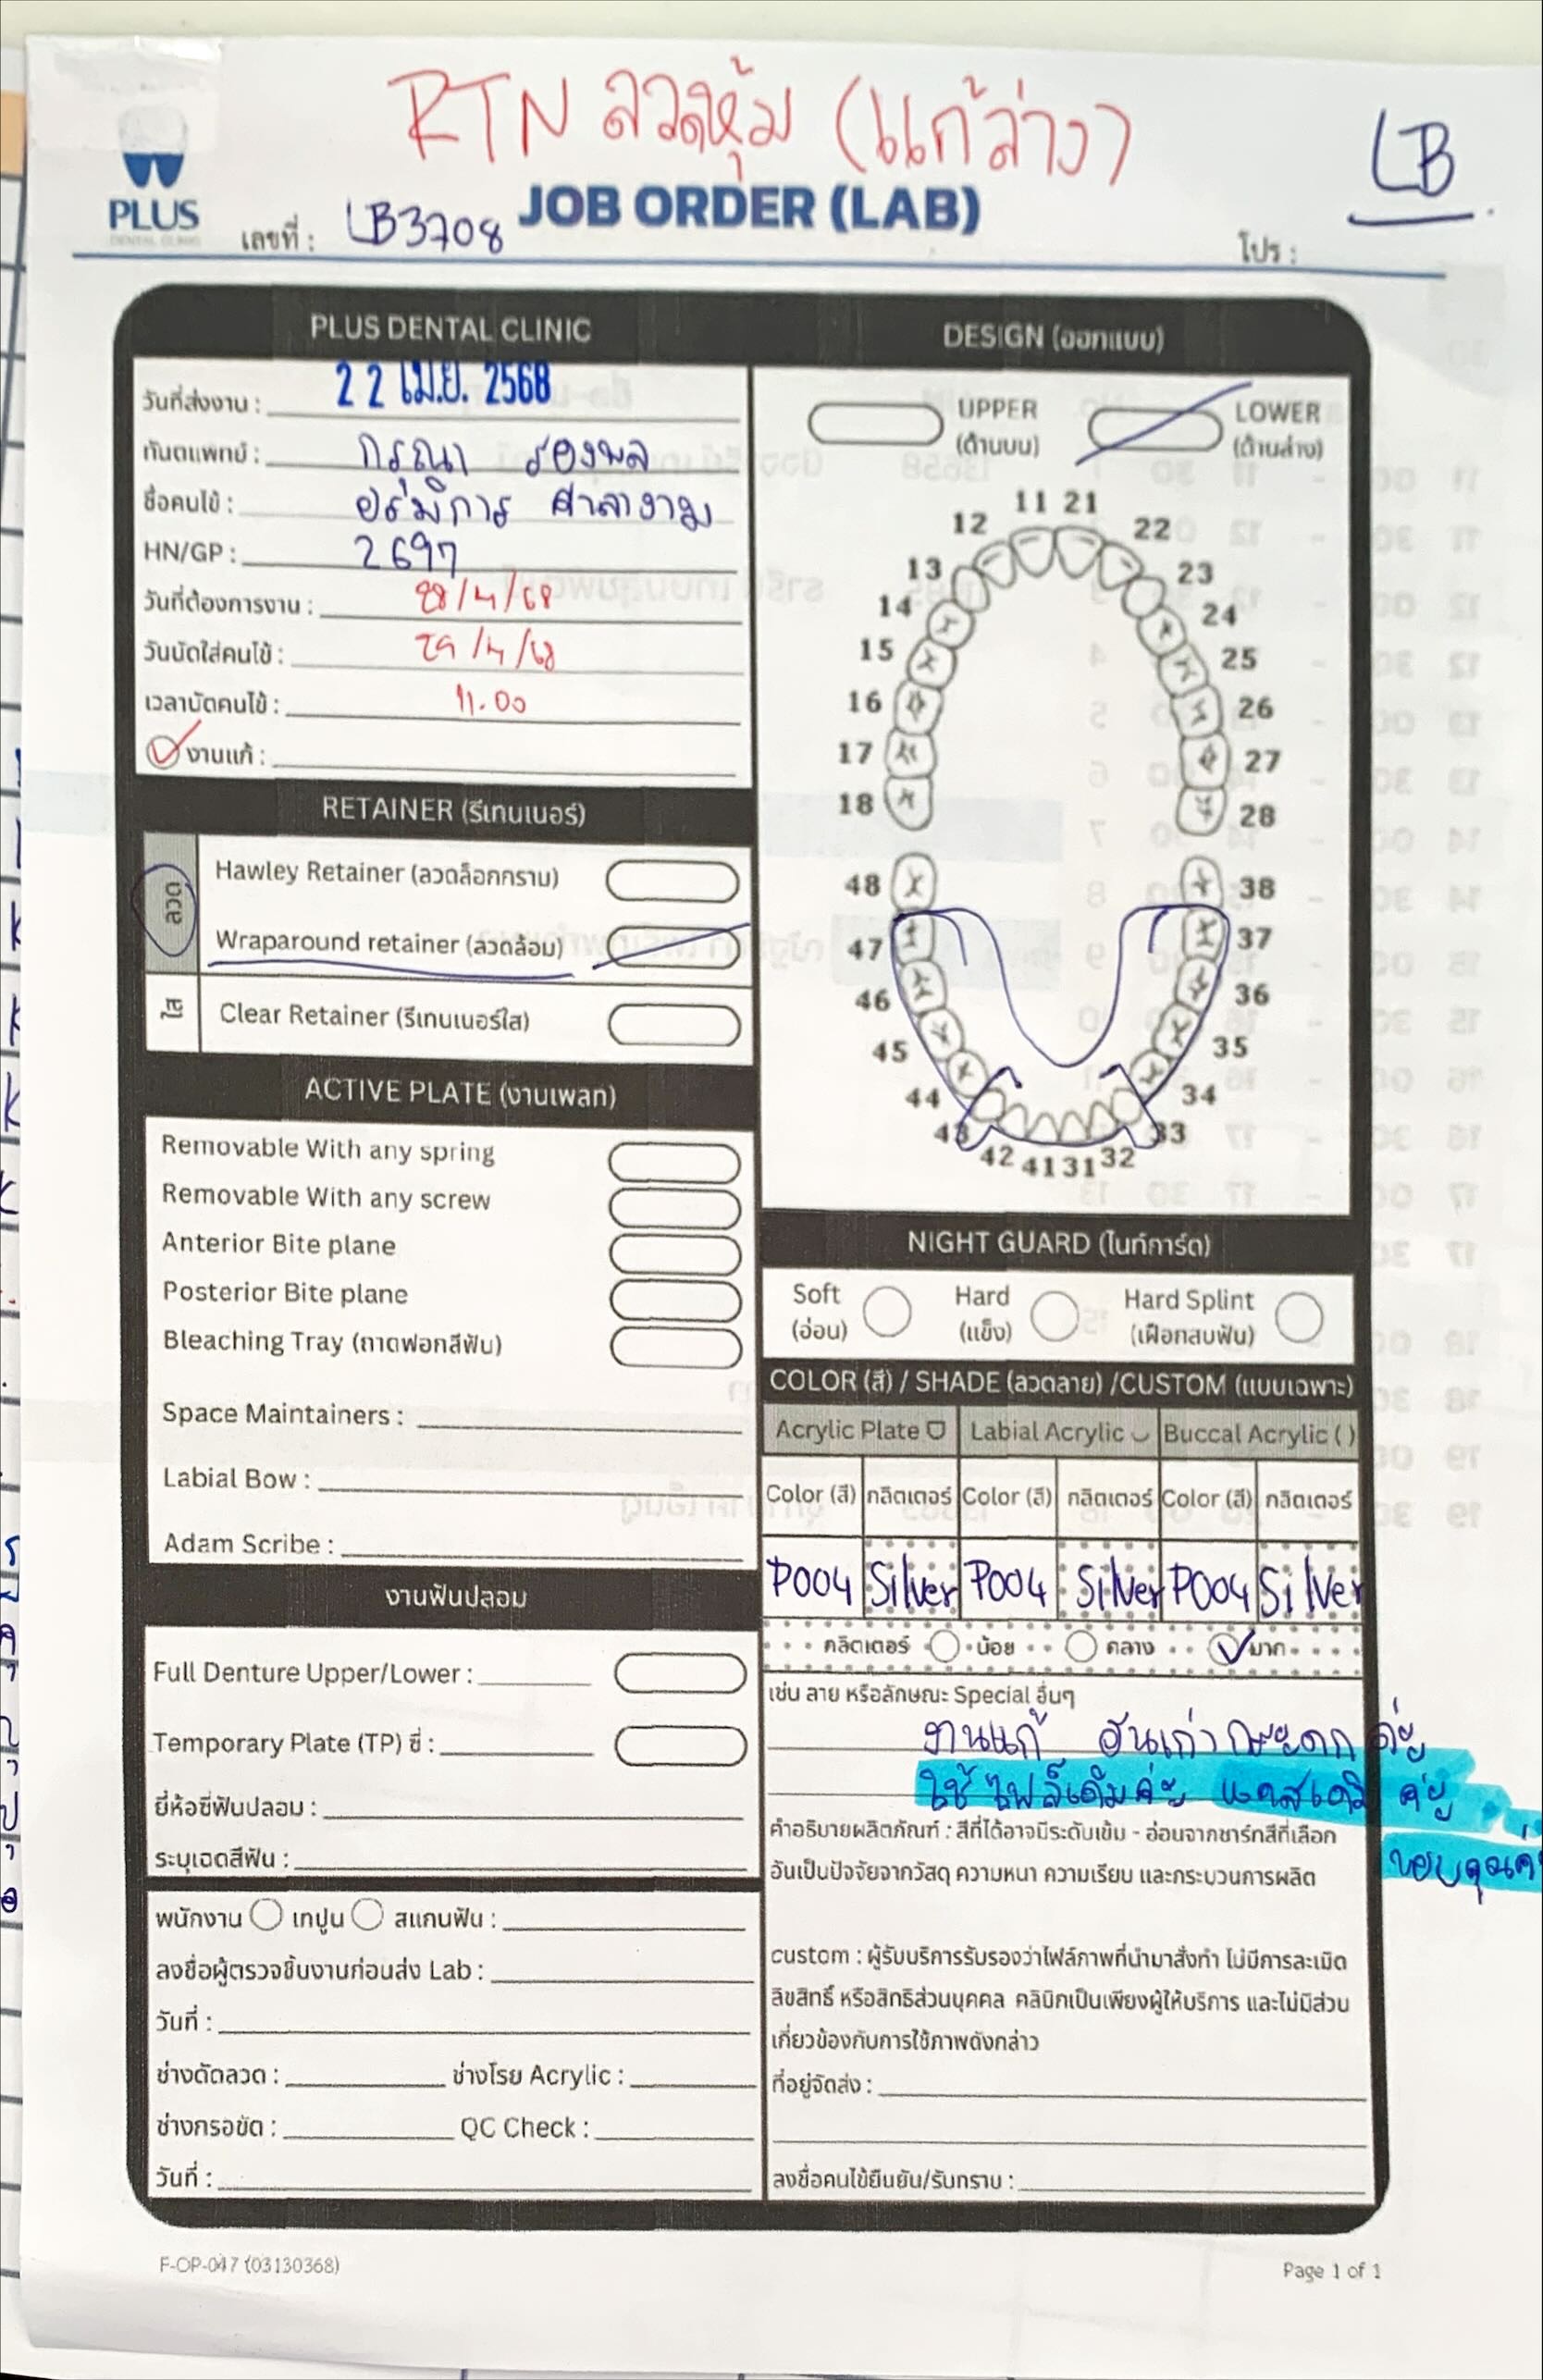 RTN ลวดหุ้ม (แก้ล่าง)
LB
PLUS
DENTAL CLINIC
เลขที่ : LB3708
JOB ORDER (LAB)
โปร :
PLUS DENTAL CLINIC
วันที่ส่งงาน : 22 เม.ย. 2568
ทันตแพทย์ : กรุณา รองพล
ชื่อคนไข้ : อรมิการ ศาลางาม
HN/GP : 2697
วันที่ต้องการงาน : 28/4/68
วันนัดใส่คนไข้ : 29/4/68
เวลานัดคนไข้ : 11.00
งานแก้ :
RETAINER (รีเทนเนอร์)
ลวด
Hawley Retainer (ลวดล็อกกราม)
Wraparound retainer (ลวดล้อม)
ใส
Clear Retainer (รีเทนเนอร์ใส)
ACTIVE PLATE (งานเพลท)
Removable With any spring
Removable With any screw
Anterior Bite plane
Posterior Bite plane
Bleaching Tray (ถาดฟอกสีฟัน)
Space Maintainers :
Labial Bow :
Adam Scribe :
งานฟันปลอม
Full Denture Upper/Lower :
Temporary Plate (TP) ซี่ :
ยี่ห้อซี่ฟันปลอม :
ระบุเฉดสีฟัน :
พนักงาน เทปูน สแกนฟัน :
ลงชื่อผู้ตรวจชิ้นงานก่อนส่ง Lab :
วันที่ :
ช่างดัดลวด : ช่างโรย Acrylic :
ช่างกรอขัด : QC Check :
วันที่ :
DESIGN (ออกแบบ)
UPPER
(ด้านบน)
LOWER
(ด้านล่าง)
11 21
12 22
13 23
14 24
15 25
16 26
17 27
18 28
48 38
47 37
46 36
45 35
44 34
43 33
42 41 31 32
NIGHT GUARD (ไนท์การ์ด)
Soft
(อ่อน)
Hard
(แข็ง)
Hard Splint
(เฝือกสบฟัน)
COLOR (สี) / SHADE (ลวดลาย) /CUSTOM (แบบเฉพาะ)
Acrylic Plate Labial Acrylic Buccal Acrylic ( )
Color (สี) กลิตเตอร์ Color (สี) กลิตเตอร์ Color (สี) กลิตเตอร์
P004 Silver P004 Silver P004 Silver
กลิตเตอร์ น้อย กลาง มาก
เช่น ลาย หรือลักษณะ Special อื่นๆ
งานแก้ อันเก่า ค่ะ
ใช้ไฟล์เดิมค่ะ เคสเดิม ค่ะ
ขอบคุณค่ะ
คำอธิบายผลิตภัณฑ์ : สีที่ได้อาจมีระดับเข้ม - อ่อนจากชาร์ทสีที่เลือก
อันเป็นปัจจัยจากวัสดุ ความหนา ความเรียบ และกระบวนการผลิต
custom : ผู้รับบริการรับรองว่าไฟล์ภาพที่นำมาสั่งทำ ไม่มีการละเมิด
ลิขสิทธิ์ หรือสิทธิส่วนบุคคล คลินิกเป็นเพียงผู้ให้บริการ และไม่มีส่วน
เกี่ยวข้องกับการใช้ภาพดังกล่าว
ที่อยู่จัดส่ง :
ลงชื่อคนไข้ยืนยัน/รับทราบ :
F-OP-047 (03130368)
Page 1 of 1